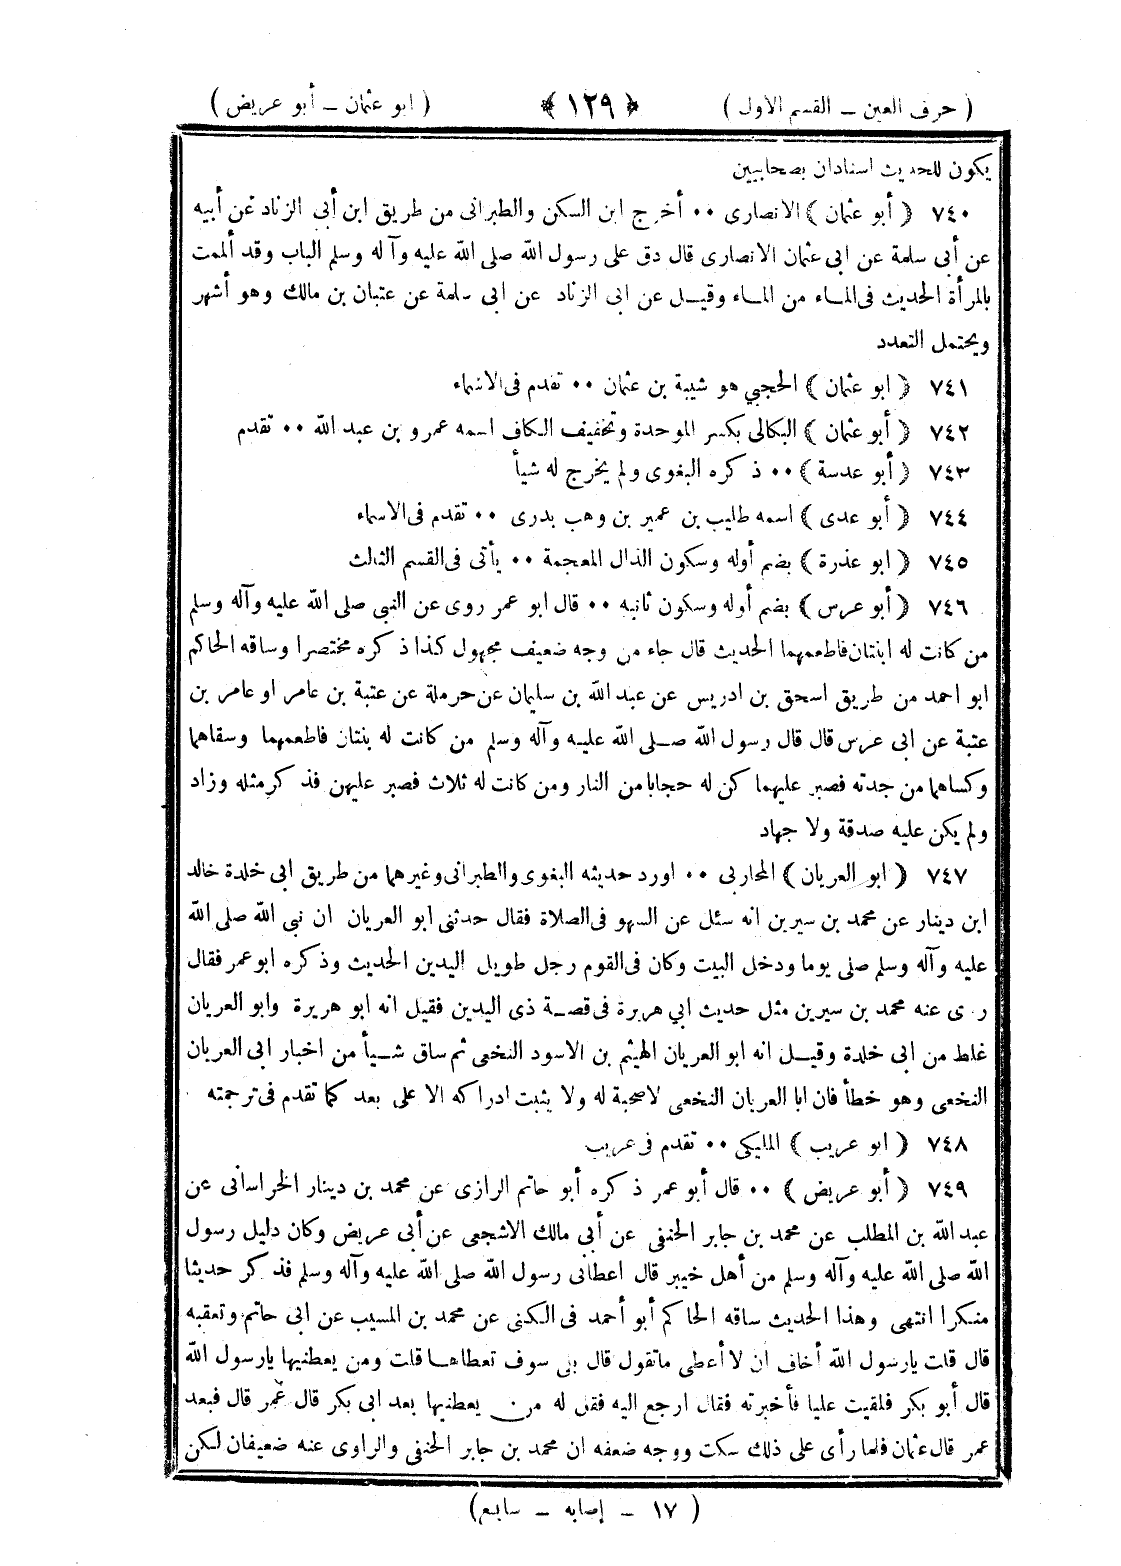 ( حرف العين – القسم الاول ) ﴿ ١٢٩ ﴾ ( ابو عثمان – أبو عريض )
يكون للحديث اسنادان بصحابيين
٧٤٠ ( أبو عثمان ) الانصارى ٠٠ أخرج ابن السكن والطبرانى من طريق ابن أبى الزناد عن أبيه
عن أبى سلمة عن ابى عثمان الانصارى قال دق على رسول الله صلى الله عليه وآله وسلم الباب وقد ألممت
بالمرأة الحديث فى الماء من الماء وقيل عن ابى الزناد عن ابى سلمة عن عتبان بن مالك وهو أشهر
ويحتمل التعدد
٧٤١ ( ابو عثمان ) الحجبي هو شيبة بن عثمان ٠٠ تقدم فى الاسماء
٧٤٢ ( أبو عثمان ) البكالى بكسر الموحدة وتخفيف الكاف اسمه عمرو بن عبد الله ٠٠ تقدم
٧٤٣ ( أبو عدسة ) ٠٠ ذكره البغوى ولم يخرج له شيأ
٧٤٤ ( أبو عدى ) اسمه طليب بن عمير بن وهب بدرى ٠٠ تقدم فى الاسماء
٧٤٥ ( ابو عذرة ) بضم أوله وسكون الذال المعجمة ٠٠ يأتى فى القسم الثالث
٧٤٦ ( أبو عرس ) بضم أوله وسكون ثانيه ٠٠ قال ابو عمر روى عن النبى صلى الله عليه وآله وسلم
من كانت له ابنتان فاطعمهما الحديث قال جاء من وجه ضعيف مجهول كذا ذكره مختصرا وساقه الحاكم
ابو احمد من طريق اسحق بن ادريس عن عبد الله بن سليمان عن حرملة عن عتبة بن عامر او عامر بن
عتبة عن ابى عرس قال قال رسول الله صلى الله عليه وآله وسلم من كانت له بنتان فاطعمهما وسقاهما
وكساهما من جدته فصبر عليهما كن له حجابا من النار ومن كانت له ثلاث فصبر عليهن فذكر مثله وزاد
ولم يكن عليه صدقة ولا جهاد
٧٤٧ ( ابو العريان ) المحاربى ٠٠ اورد حديثه البغوى والطبرانى وغيرهما من طريق ابى خلدة خالد
ابن دينار عن محمد بن سيرين انه سئل عن السهو فى الصلاة فقال حدثنى ابو العريان ان نبى الله صلى الله
عليه وآله وسلم صلى يوما ودخل البيت وكان فى القوم رجل طويل اليدين الحديث وذكره ابو عمر فقال
روى عنه محمد بن سيرين مثل حديث ابي هريرة فى قصة ذى اليدين فقيل انه ابو هريرة وابو العريان
غلط من ابى خلدة وقيل انه ابو العريان الهيثم بن الاسود النخعى ثم ساق شيأ من اخبار ابى العريان
النخعى وهو خطأ فان ابا العريان النخعى لاصحبة له ولا يثبت ادراكه الا على بعد كما تقدم فى ترجمته
٧٤٨ ( ابو عريب ) المليكى ٠٠ تقدم فى عريب
٧٤٩ ( أبو عريض ) ٠٠ قال أبو عمر ذكره أبو حاتم الرازى عن محمد بن دينار الخراسانى عن
عبد الله بن المطلب عن محمد بن جابر الحنفى عن أبى مالك الاشجعى عن أبى عريض وكان دليل رسول
الله صلى الله عليه وآله وسلم من أهل خيبر قال اعطانى رسول الله صلى الله عليه وآله وسلم فذكر حديثا
منكرا انتهى وهذا الحديث ساقه الحاكم أبو أحمد فى الكنى عن محمد بن المسيب عن ابى حاتم وتعقبه
قال قلت يارسول الله أخاف ان لا أعطى ماتقول قال بلى سوف تعطاها قلت ومن يعطنيها يارسول الله
قال أبو بكر فلقيت عليا فأخبرته فقال ارجع اليه فقل له من يعطنيها بعد ابى بكر قال عمر قال فبعد
عمر قال عثمان فلما رأى على ذلك سكت ووجه ضعفه ان محمد بن جابر الحنفى والراوى عنه ضعيفان لكن
( ١٧ – إصابه – سابع )